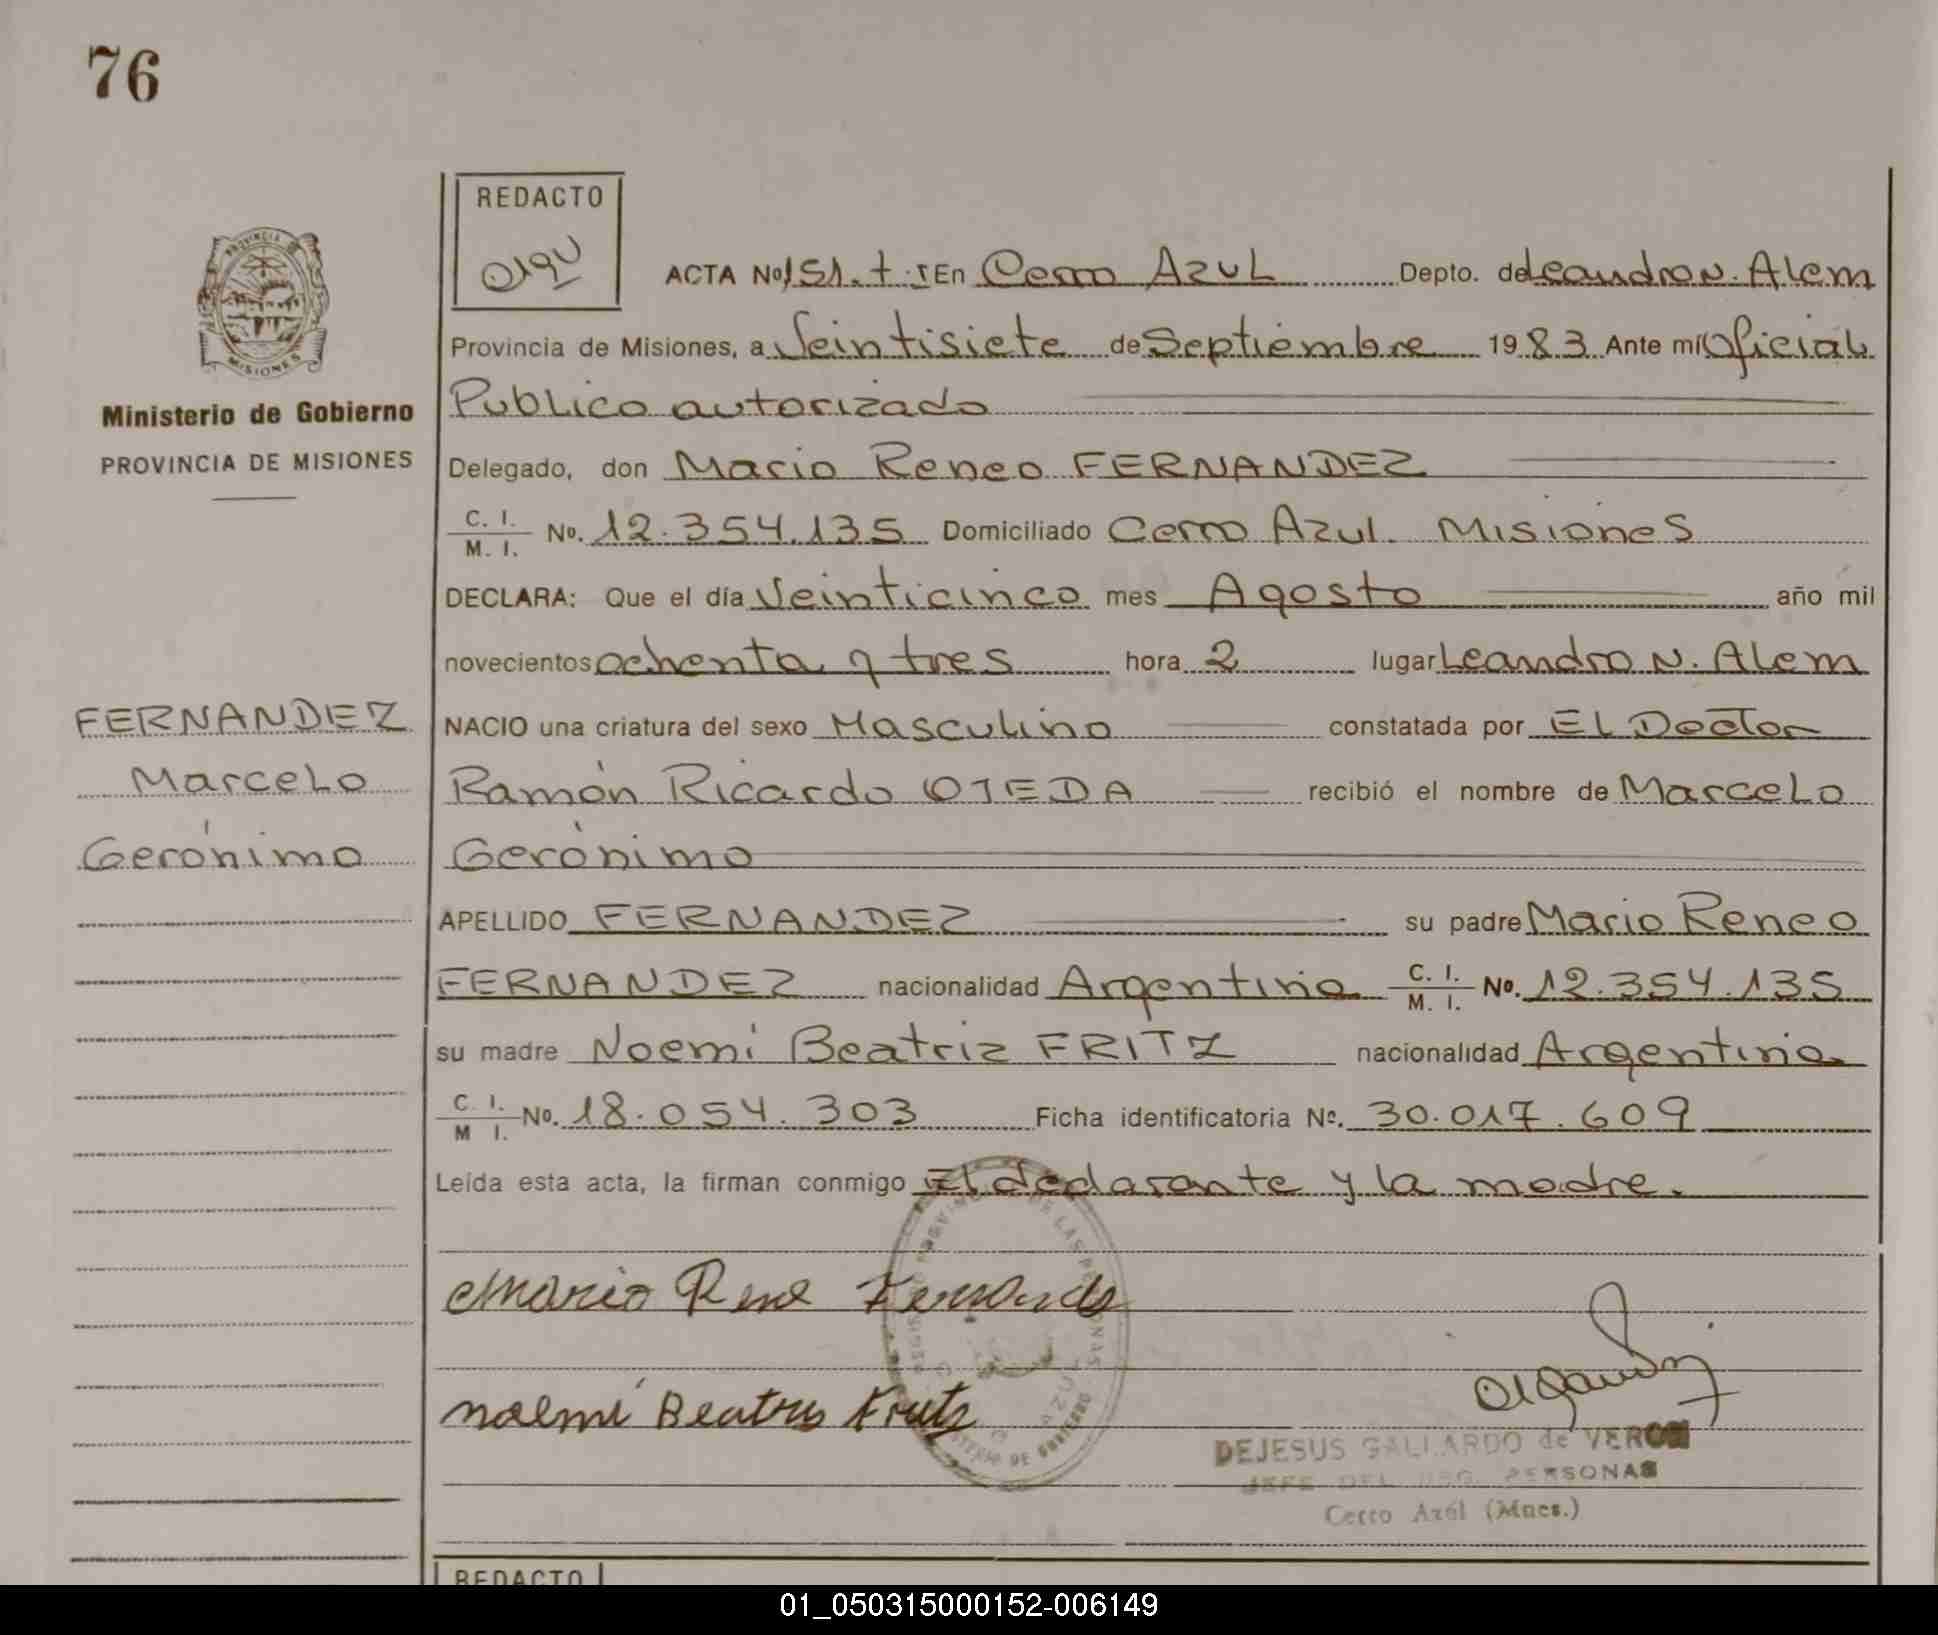 76
REDACTO
ACTA No 151. t. I En Cerro AZUL Depto. de Leandro N. Alem
Provincia de Misiones, a Veintisiete de Septiembre 1983 Ante mí Oficial
Publico autorizado
Ministerio de Gobierno
PROVINCIA DE MISIONES
Delegado, don Mario Reneo FERNANDEZ
C. I. / M. I. No. 12.354.135 Domiciliado Cerro Azul. Misiones
DECLARA: Que el día Veinticinco mes Agosto año mil
novecientos ochenta y tres hora 2 lugar Leandro N. Alem
FERNANDEZ
Marcelo
Gerónimo
NACIO una criatura del sexo Masculino constatada por El Doctor
Ramón Ricardo OJEDA recibió el nombre de Marcelo
Gerónimo
APELLIDO FERNANDEZ su padre Mario Reneo
FERNANDEZ nacionalidad Argentina C. I. / M. I. No. 12.354.135
su madre Noemí Beatriz FRITZ nacionalidad Argentina
C. I. / M I. No. 18.054.303 Ficha identificatoria Nº. 30.017.609
Leída esta acta, la firman conmigo El declarante y la madre.
Mario Rene Fernande
Noemí Beatris Fritz
DEJESUS GALLARDO de VERON
JEFE DEL REG. PERSONAS
Cerro Azúl (Mnes.)
REDACTO
01_050315000152-006149